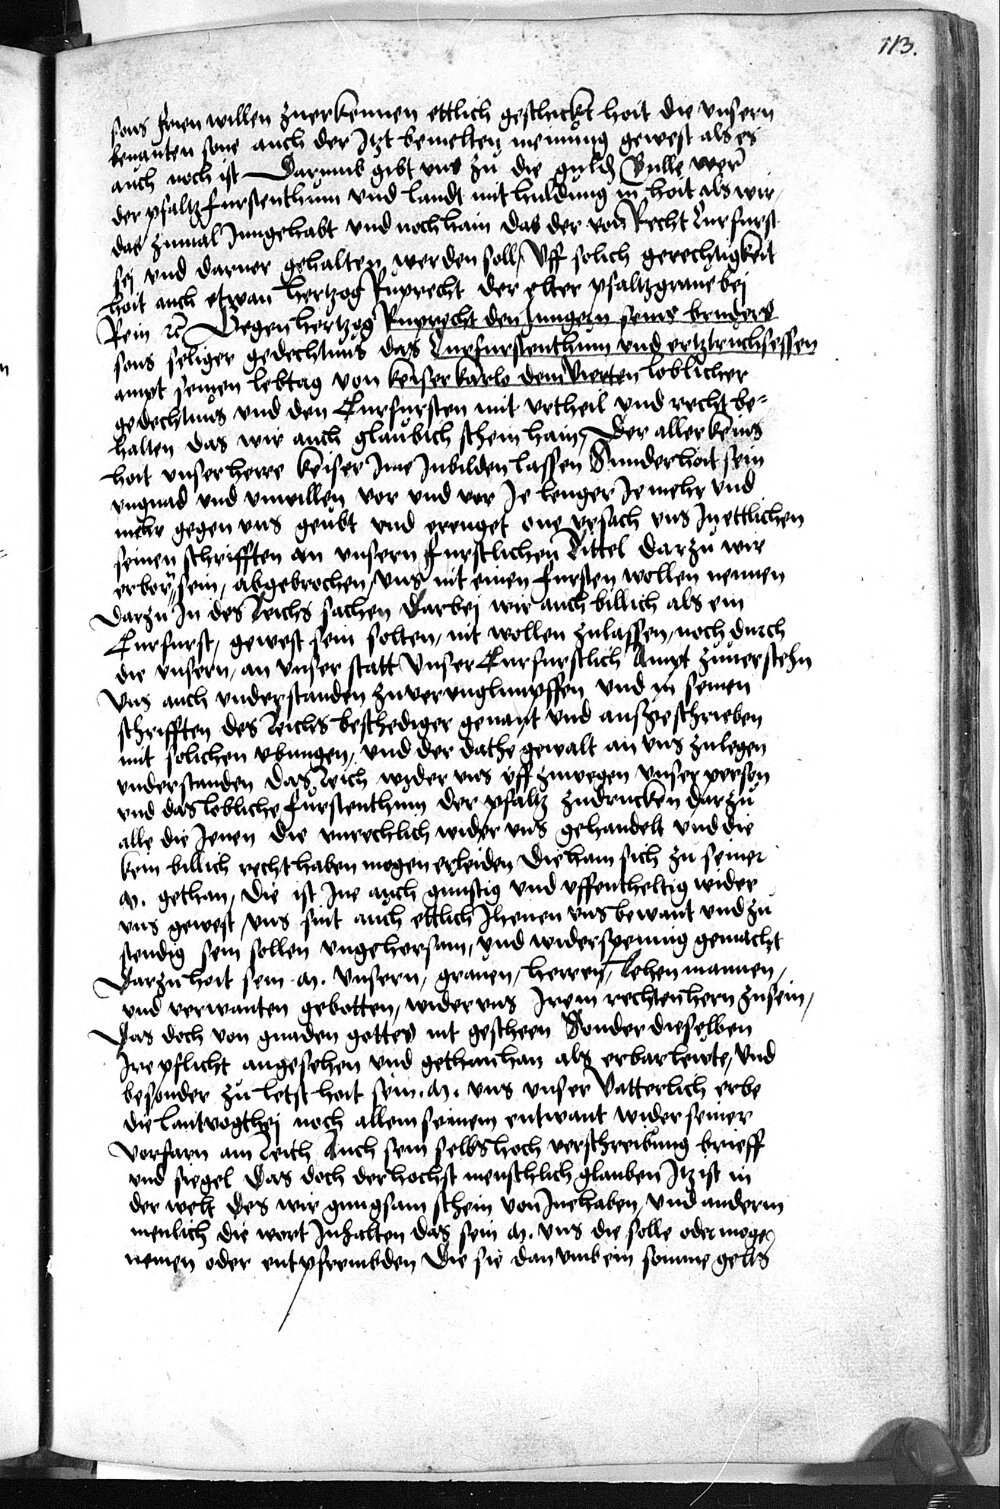 113.
sons freien willen zuerkennen ettlich geschickt hoit die unsern
benanten sone auch der Itzt bemelten meinung gewest als es
auch noch ist Darumb gibt uns zu die guld Bulle wer
der pfaltz furstenthum und landt mit huldung in hoit als wir
das zumal Inngehabt und noch hain das der von Recht Curfurst
sej und darner gehalten werden soll, Uff solich gerechtigkeit
hoit auch etwan hertzog Ruprecht der elter pfaltzgraue bej
Rein ꝛc Gegen hertzog Ruprecht den Jungern seins bruders
sons seliger gedechtnus das Curfurstenthum und ertztruchsessen
ampt seinen lebtag von keiser karlo dem Vierten loblicher
gedechtnus und den Curfursten mit urtheil und recht be-
halten das wir auch glaubich schein hain, Der aller keins
hoit unser herre keiser Ime Inbilden lassen Sunder hoit sein
ungnad und unwillen vor und vor Je lenger Je mehr und
mehr gegen uns geubt und ereuget one ursach uns In ettlichen
seinen schrifften an unsern furstlichen Tittel darzu wir
erborn sein, abgebrochen, uns nit einen fursten wollen nennen
darzu In des Reichs sachen Darbej wir auch billich als ein
Curfurst, gewest sein solten, nit wollen zulassen, noch durch
die unsern, an unser statt Unser Curfurstlich Ampt zuuerstehn
Uns auch understanden zuverunglimpffen und in seinen
schrifften des Reichs beschediger genant und ausgeschrieben
mit solichen ubungen, und der dathe gewalt an uns zulegen
understanden das Reich wyder uns uff zuwegen unser person
und das lobliche furstenthum der pfaltz zudrucken darzu
alle die Jenen die unrechlich wider uns gehandelt und die
kein billich recht haben mogen erleiden Die ham sich zu seiner
M. gethan, die ist Ine auch gunstig und uffentheltig wider
uns gewest, uns sint auch ettlich Ihenen uns bewant und zu
stendig sein sollen ungehorsam, und widerspennig gemacht
Darzu hoit sein M. unsern, grauen, herren, lehen mannen,
und verwanten gebotten, wider uns Irem rechten hern zusein,
Das doch von gnaden gottes nit gescheen Sonder dieselben
Ire pflicht angesehen und gethan han als erbar lewte, Und
besonder zu letst hoit sein. M. uns unser Vatterlich erbe
die lantvogthej noch allem seinem entwant wider seiner
vorfarn am Reich Auch sein selbs hoch verschreibung brieff
und siegel Das doch der hochst menschlich glauben Itz ist in
der welt Des wir gnugsam schein von Ine haben, und anderm
menlich die wort Inhalten das sein M. uns die solle oder moge
nemen oder entpfrembden Die sie dan umb ein somme gelts